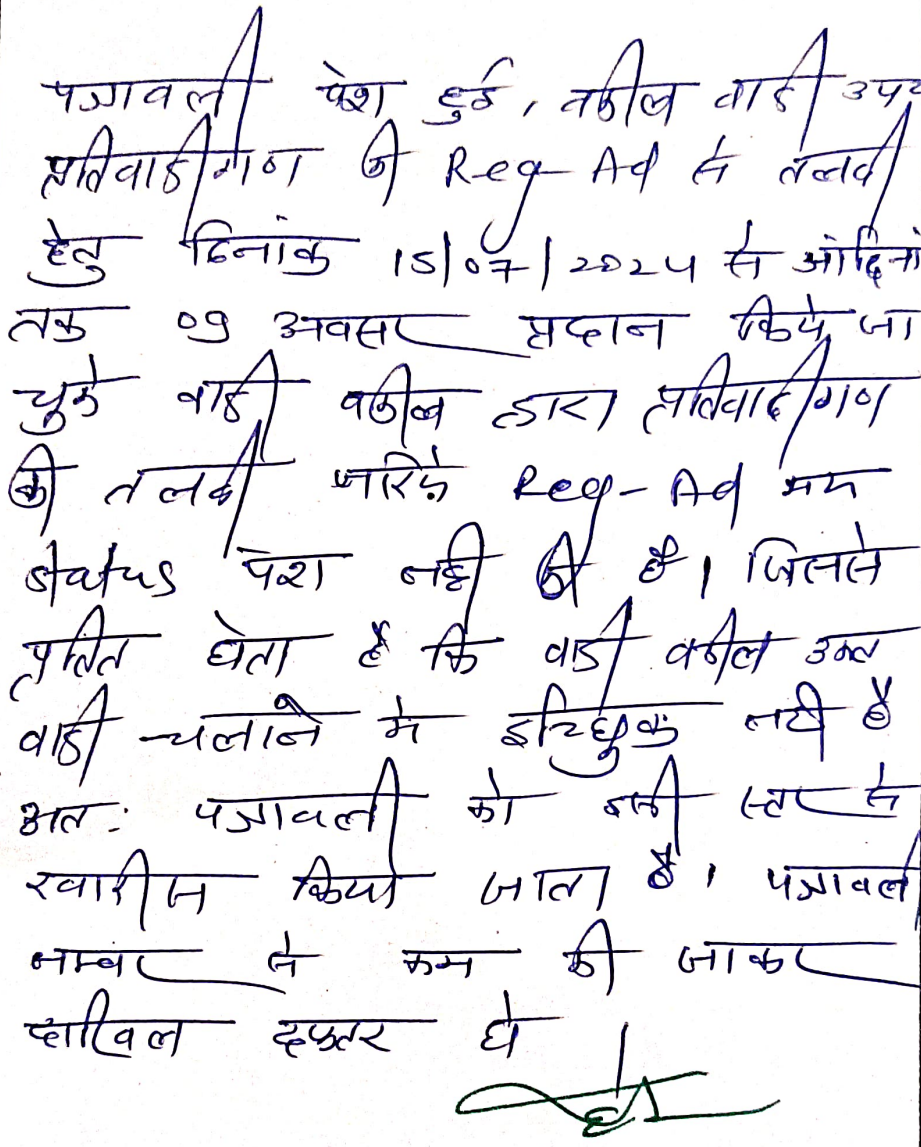 पत्रावली पेश हुई, वकील वादी उप०
प्रतिवादीगण की Reg-Ad से तलबी
हेतु दिनांक 15/07/2024 से ओदिनां
तक 09 अवसर प्रदान किये जा
चुके वादी वकील द्वारा प्रतिवादीगण
की तलबी जरिये Reg-Ad मय
status पेश नही की है। जिससे
प्रतित होता है कि वादी वकील उक्त
वादी चलाने में इच्छुक नही है
अत: पत्रावली को इसी स्तर से
खारीज किया जाता है। पत्रावली
नम्बर से कम की जाकर
दाखिल दफ्तर हो।